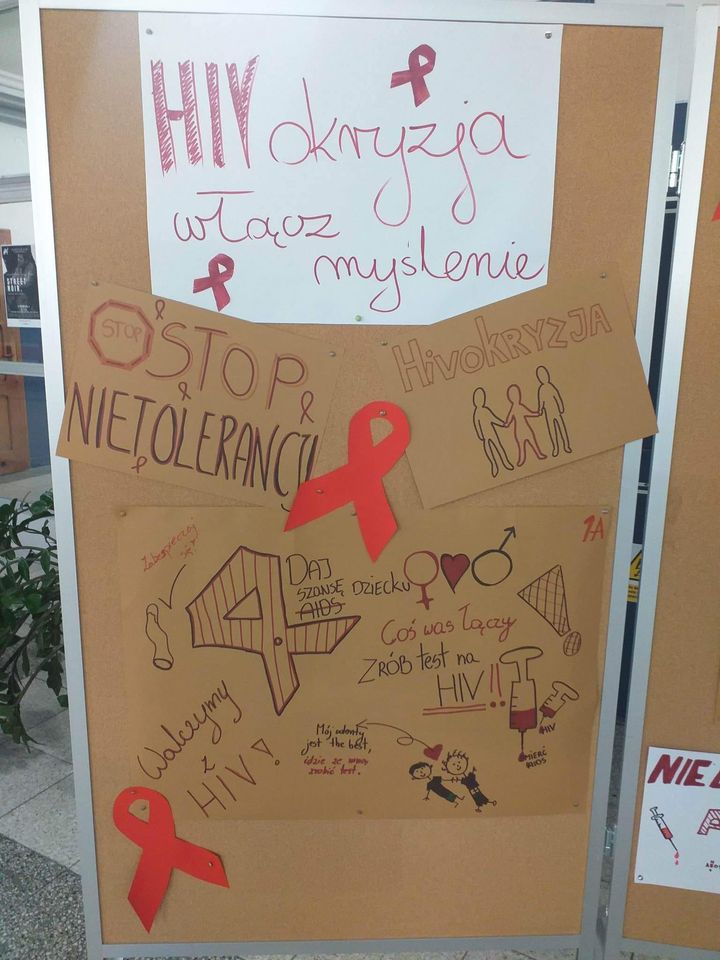 HIVokryzja
włącz
myślenie
STOP
STOP
NIETOLERANCJI
HIVOKRYZJA
1A
Zabezpieczaj
się!
DAJ
SZANSĘ DZIECKU
AIDS
Coś was łączy
ZRÓB test na
HIV!!
HIV
ŚMIERĆ
AIDS
Walczymy
z
HIV!
jest the best,
idzie ze mną
zrobić test.
NIE
STREET